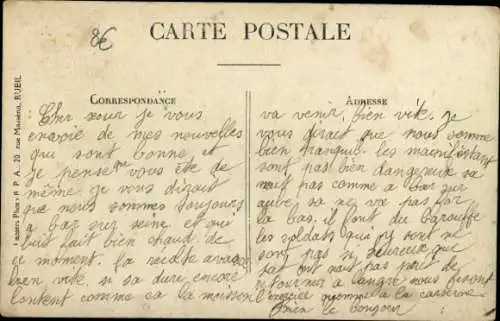 8€
CARTE POSTALE
CORRESPONDANCE
Cher sœur je vous
envoie de mes nouvelles
qui sont bonne et
je pense que vous ête de
même. je vous dirait
que nous sommes toujours
a bar sur seine et qui
fait bien chaud de
ce moment. la récolte avance
bien vite si sa dure encore
comme ca la moisson
ADRESSE
va venir bien vite. Je
vous dirait que nous somme
bien tranquil. les manifestant
sont pas bien dangereux sa
nait pas comme a bar sur
aube sa ne va pas fort
la bas. il ont du
les soldats qui y sont ne
sont pas si heureux que
sat ont nait pas pret de
retourner a langre nous faisont
l'exercice comme a la caserne
rien le bonjour
20, rue Masséna, RUEIL